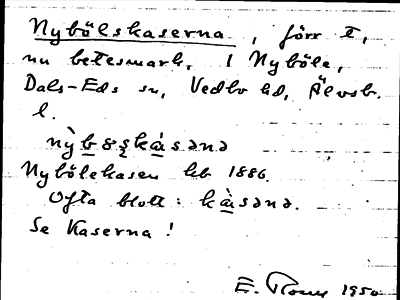 Nybölskaserna, förr t,
nu betesmark, i Nyböle,
Dals-Eds sn, Vedbo hd, Älvsb.
l.
nỳbəʂkà̱sənə
Nybölekasen lib 1886.
Ofta blott: kà̱sənə.
Se Kaserna!
E. 1950